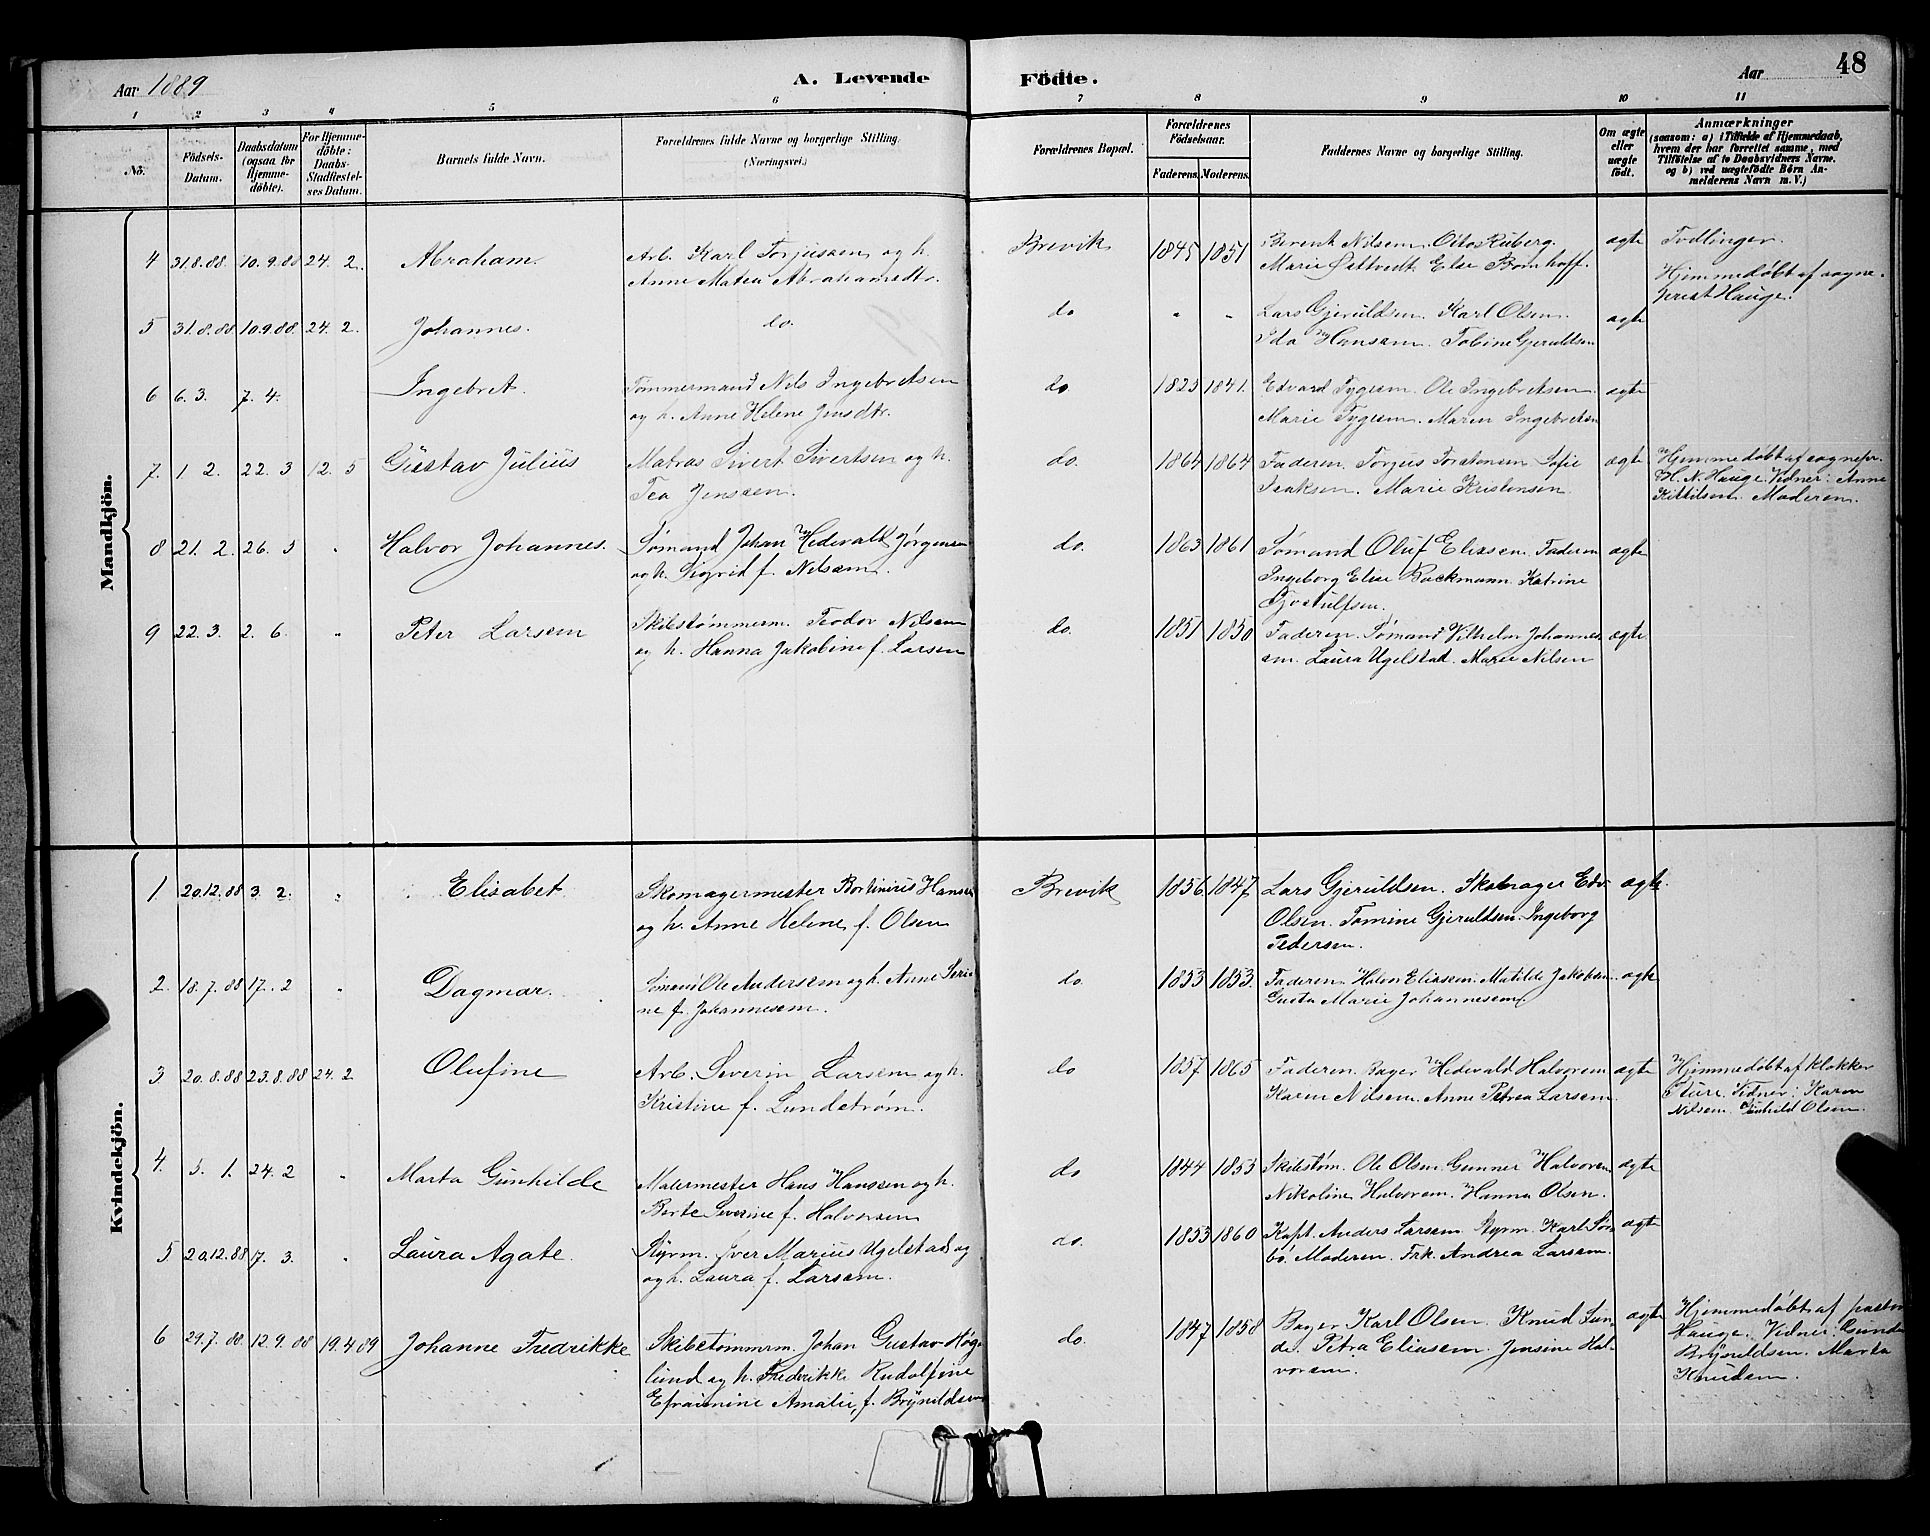 Aar 1889
A. Levende
Födte.
Aar
48
1 2 3 4 5 6 7 8 9 10 11
No.
Födsels-
Datum.
Daabsdatum
(ogsaa for
Hjemme-
døbte).
For Hjemme-
døbte:
Daabs-
Stadfæstel-
ses Datum.
Barnets fulde Navn.
Forældrenes fulde Navne og borgerlige Stilling.
(Næringsvei.)
Forældrenes Bopæl.
Forældrenes
Födselsaar.
Faderens. Moderens.
Faddernes Navne og borgerlige Stilling.
Om ægte
eller
uægte
født.
Anmærkninger
(saasom: a) i Tilfælde af Hjemmedaab,
hvem der har forrettet samme, med
Tilføielse af to Daabsvidners Navne.
og b) ved uægtefödte Börn An-
melderens Navn m. V.)
Mandkjön.
4 31.8.88. 10.9.88 24. 2. Abraham. Arb. Karl Torjussen og h.
Anne Matea Abrahamsdtr.
Brevik 1845 1851 Berent Nilsen. Otto Ruberg.
Marie Saltvedt. Else Bomhoff.
ægte Tvillinger.
Hjemmedøbt af sogne-
prest Hauge.
5 31.8.88 10.9.88. 24. 2. Johannes. do.
do " " Lars Gjeruldsen. Karl Olsen.
Ida Hansen. Tobine Gjeruldsen
ægte
6 6. 3. 7. 4. Ingebret. Tømmermand Nils Ingebretsen
og h. Anne Helene Jensdtr.
do 1823 1841. Edvard Tygesen. Ole Ingebretsen.
Marie Tygesen. Maren Ingebretsen
ægte
7. 1. 2. 22. 3 12. 5 Gustav Julius Matros Sivert Sivertsen og h.
Tea Jenssen.
do. 1864 1864 Faderen. Torjus Torstensen. Sofie
Isaksen. Marie Kristensen
ægte Hjemmedøbt af sognepr.
H. N. Hauge. Vidner: Anne
Kittilsen. Moderen.
8 21. 2. 26. 5 " Halvor Johannes. Sømand Johan Hedevald Jørgensen
og h. Sigrid f. Nilsen.
do. 1863 1861 Sømand Oluf Eliesen. Faderen
Ingeborg Elise Backmann. Katrine
Tjostulfsen.
ægte
9 22. 3. 2. 6. " Peter Larsen Skibstømmerm. Teodor Nilsen
og h. Hanna Jakobine f. Larsen
do. 1851 1850 Faderen. Sømand Vilhelm Johannes-
sen. Laura Ugelstad. Marie Nilsen
ægte
Kvindekjön.
1. 20.12.88 3. 2. " Elisabet Skomagermester Bortinius Hansen
og h. Anne Helene f. Olsen
Brevik 1856 1847 Lars Gjeruldsen. Skomager Edv.
Olsen. Tomine Gjeruldsen. Ingeborg
Pedersen.
ægte.
2. 18.7.88 17. 2 " Dagmar. Sømand Ole Andersen og h. Anne Seri-
ne f. Johannesen.
do. 1853 1853. Faderen. Halvor Eliasen. Matilde Jakobsen.
Gusta Marie Johannesen
ægte
3 20.8.88 23.8.88 24. 2 Olufine Arb. Severin Larsen og h.
Kristine f. Lundstrøm.
do 1857 1865 Faderen. Bager Hedevald Halvorsen
Karen Nilsen. Anne Petrea Larsen.
ægte Hjemmedøbt af klokker
Sture. Vidner: Karen
Nilsen. Gunhild Olsen.
4. 5. 1. 24. 2 " Marta Gunhilde Malermester Hans Hanssen og h.
Berte Severine f. Halvorsen
do 1844 1853 Skibstøm. Ole Olsen. Gunner Halvorsen
Nikoline Halvorsen. Hanna Olsen.
ægte
5 20.12.88 17. 3. " Laura Agate. Styrm. Iver Marius Ugelstad og
og h. Laura f. Larsen.
do. 1853 1860 Kapt. Anders Larsen. Styrm. Karl Søn-
bø. Moderen. Frk. Andrea Larsen.
ægte
6 29.7.88. 12.9.88 19.4 89 Johanne Fredrikke Skibstømmrm. Johan Gustav Høg-
lund og h. Fredrikke Rudolfine
Efraimine Amalie, f. Brynildsen
do. 1847 1858 Bager Karl Olsen. Knud Sun-
de. Petra Eliasen. Jensine Hal-
vorsen.
ægte Hjemmedøbt af pastor
Hauge. Vidner: Gunda
Brynildsen. Marta
Knudsen.